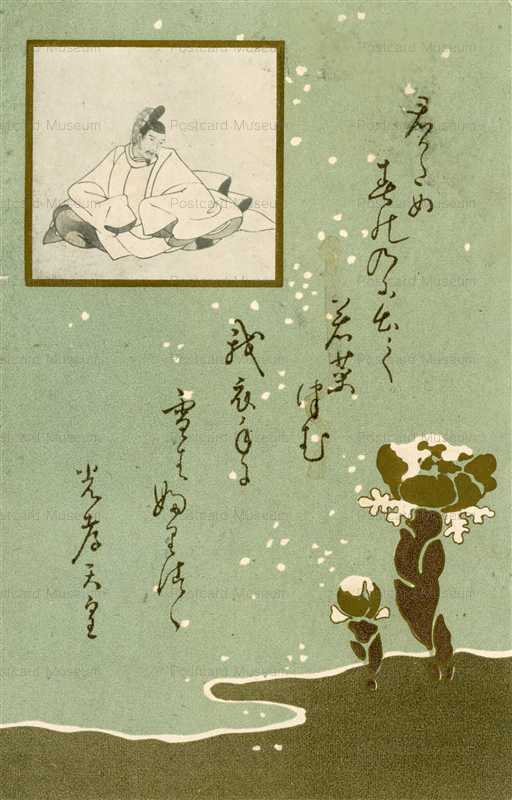 君可ため
春の乃に出て
若菜つむ
我衣手に
雪は婦りつゝ
光孝天皇
Postcard Museum